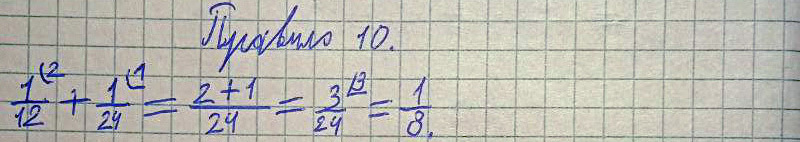 Правило 10.
1/12 ⁽² + 1/24 ⁽¹ = 2+1/24 = 3/24 ⁽³ = 1/8.